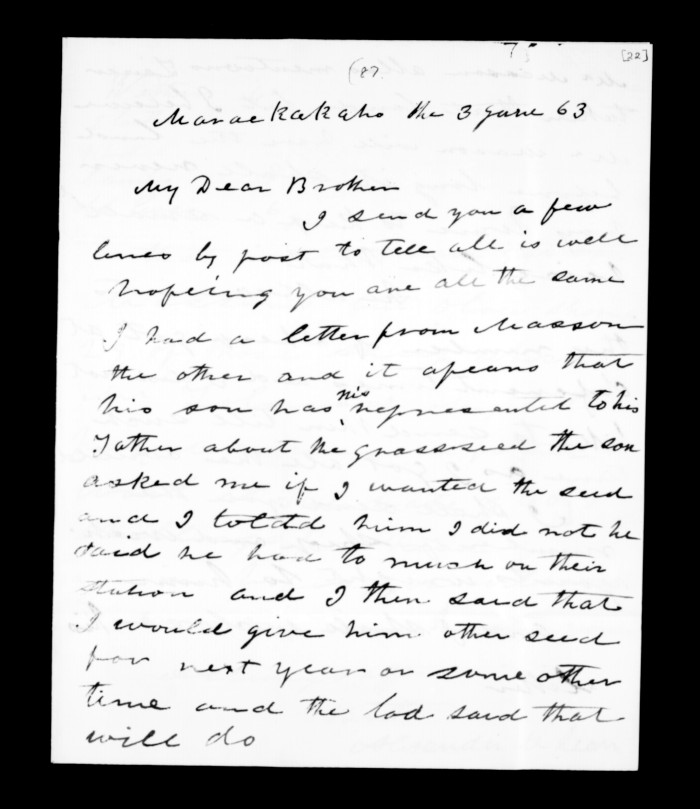 [22]
(87.
Maraekakaho the 3 June 63
My Dear Brother
I send you a few
lines by post to tell all is well
hopeing you are all the same
I had a letter from Masson
the other and it apears that
his son has misrepresented to his
Father about the grassseed the son
asked me if I wanted the seed
and I toldd him I did not he
said he had to much on their
station and I then said that
I would give him other seed
for next year or some other
time and the lad said that
will do